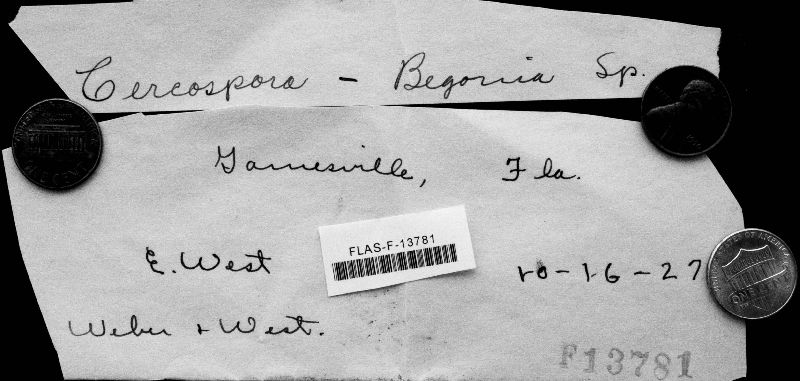 Cercospora - Begonia Sp.
Gainesville, Fla.
FLAS-F-13781
E. West
10-16-27
Weber + West.
F13781
ONE CENT